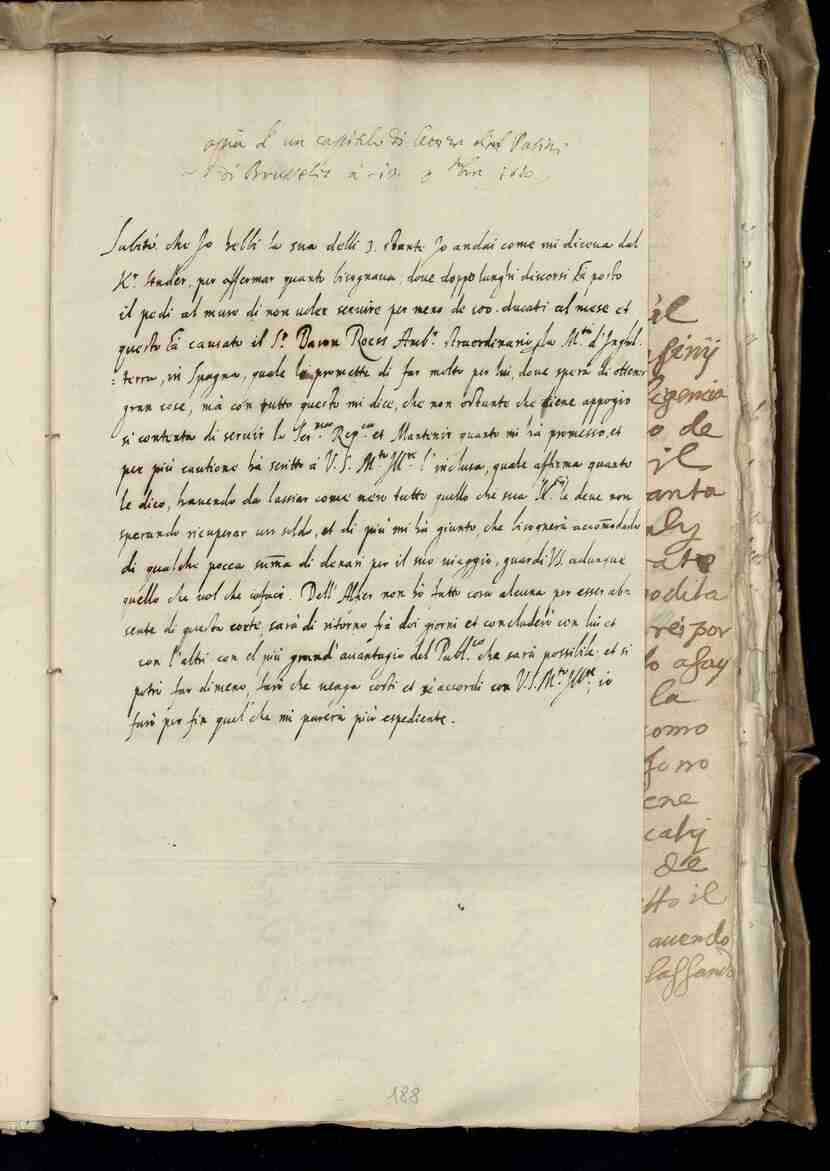 copia d'un capitolo di lettera del Pasini
di Bruselles à 10 9mbre 1610
Subito che Jo hebbi la sua delli 3. stante Jo andai come mi diceva dal
Kr. Studer, per affermar quanto bisognava, dove doppo lunghi discorsi hà posto
il piedi al muro di non voler servire per meno de 500. ducati al mese et
questo hà causato il Sr. Baron Roess Ambr. straordinario della Mtà d'Inghil
=terra, in Spagna, quale li promette di far molto per lui, dove spera di ottener
gran cose, mà con tutto questo mi dice, che non ostante che tiene appogio
si contenta di servir la Serma Repca et Mantenir quanto mi hà promesso, et
per più cautione hà scritto à V. S. Mto Jllre l'inclusa, quale affirma quanto
le dico, havendo da lassiar come nero tutto quello che sua le deve non
sperando ricuperar un soldo, et di più mi hà giunto, che bisognerà acomodarlo
di qualche pocca suma di denari per il suo viaggio, guardi VS. adunque
quello che vol che io faci. Dell' non hò fatto cosa alcuna per esser ab=
sente di questa corte, sarà di ritorno frà doi giorni et concluderò con lui et
con l'altri con el più grand' avantagio del Publco che sarà possibile. et si
potrò far dimeno, farò che venga costì et s'accordi con V. S. Mto Jllre io
farò per fin quel che mi parerà più espediente.
188
il
finij
de
il
anta
rei por
la
como
ferro
ene
de
tto il
avendo
lassando